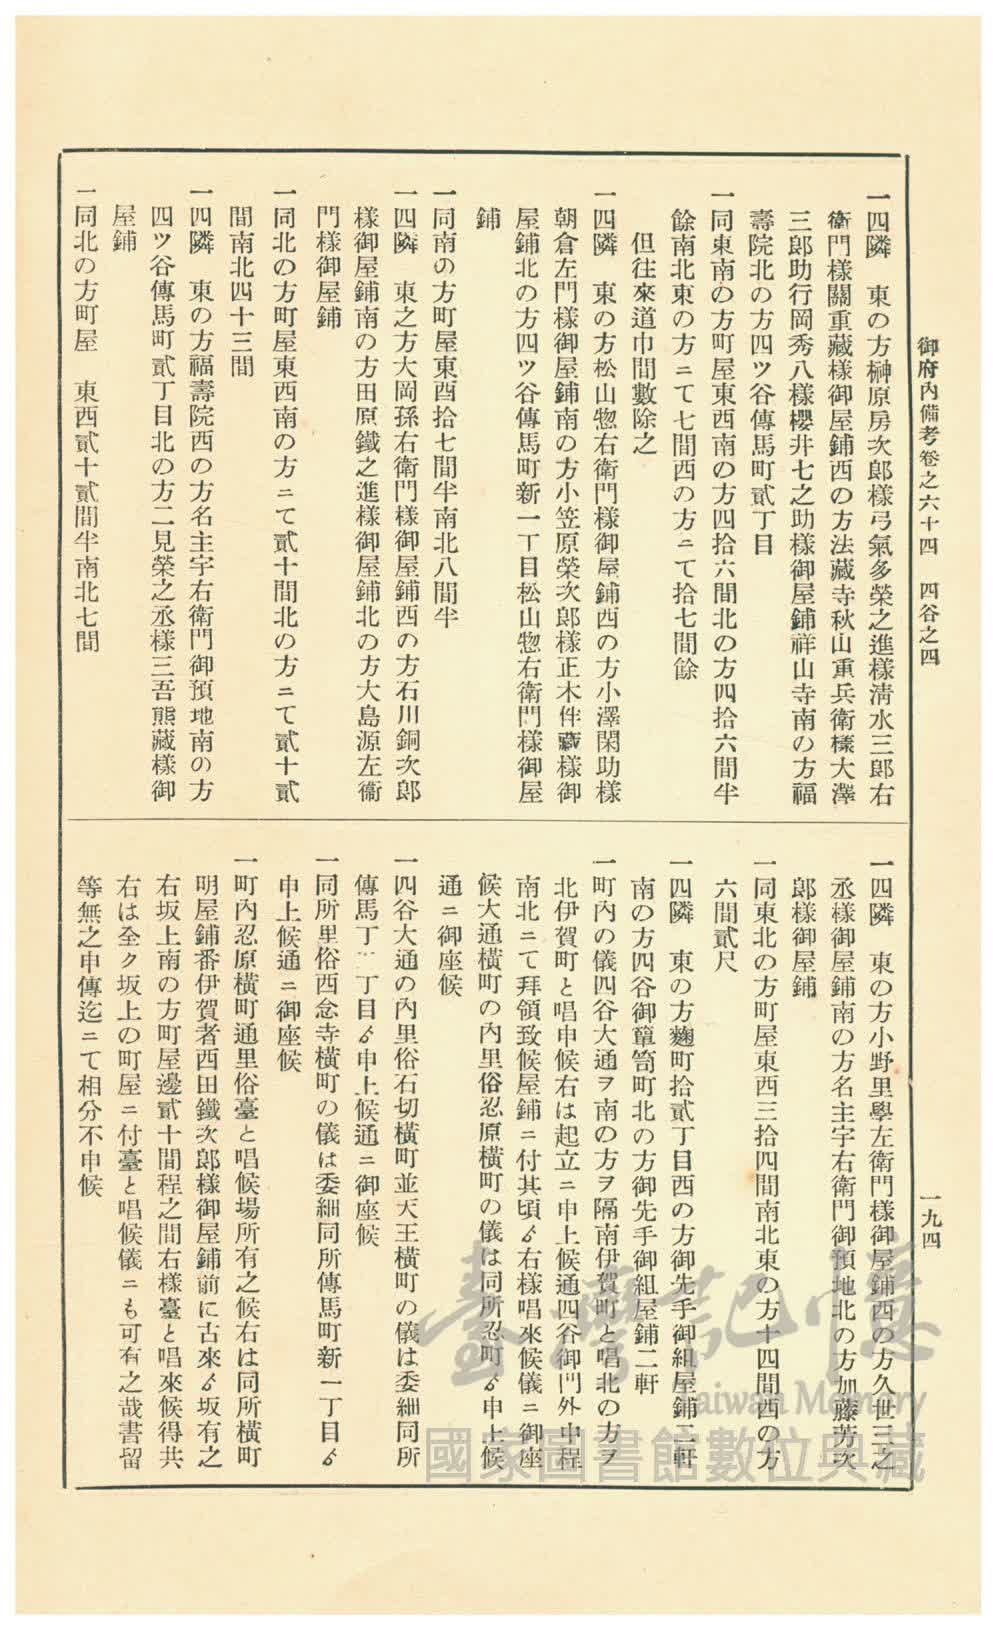 御府內備考卷之六十四　四谷之四
一九四
一四隣　東の方榊原房次郎樣弓氣多榮之進樣淸水三郎右
衞門樣關重藏樣御屋鋪西の方法藏寺秋山重兵衞樣大澤
三郎助行岡秀八樣櫻井七之助樣御屋鋪祥山寺南の方福
壽院北の方四ツ谷傳馬町貳丁目
一同東南の方町屋東西南の方四拾六間北の方四拾六間半
餘南北東の方ニて七間西の方ニて拾七間餘
但往來道巾間數除之
一四隣　東の方松山惣右衞門樣御屋鋪西の方小澤閑助樣
朝倉左門樣御屋鋪南の方小笠原榮次郎樣正木伴藏樣御
屋鋪北の方四ツ谷傳馬町新一丁目松山惣右衞門樣御屋
鋪
一同南の方町屋東酉拾七間半南北八間半
一四隣　東之方大岡孫右衞門樣御屋鋪西の方石川銅次郎
樣御屋鋪南の方田原鐵之進樣御屋鋪北の方大島源左衞
門樣御屋鋪
一同北の方町屋東西南の方ニて貳十間北の方ニて貳十貳
間南北四十三間
一四隣　東の方福壽院西の方名主宇右衞門御預地南の方
四ツ谷傳馬町貳丁目北の方二見榮之丞樣三吾熊藏樣御
屋鋪
一同北の方町屋　東西貳十貳間半南北七間
一四隣　東の方小野里學左衞門樣御屋鋪西の方久世三之
丞樣御屋鋪南の方名主宇右衞門御預地北の方加藤芳次
郎樣御屋鋪
一同東北の方町屋東西三拾四間南北東の方十四間西の方
六間貳尺
一四隣　東の方麴町拾貳丁目西の方御先手御組屋鋪二軒
南の方四谷御簞笥町北の方御先手御組屋鋪二軒
一町內の儀四谷大通ヲ南の方ヲ隔南伊賀町と唱北の方ヲ
北伊賀町と唱申候右は起立ニ申上候通四谷御門外中程
南北ニて拜領致候屋鋪ニ付其頃ゟ右樣唱來候儀ニ御座
候大通橫町の內里俗忍原橫町の儀は同所忍町ゟ申上候
通ニ御座候
一四谷大通の內里俗石切橫町並天王橫町の儀は委細同所
傳馬丁二丁目ゟ申上候通ニ御座候
一同所里俗西念寺橫町の儀は委細同所傳馬町新一丁目ゟ
申上候通ニ御座候
一町內忍原橫町通里俗臺と唱候場所有之候右は同所橫町
明屋鋪番伊賀者西田鐵次郎樣御屋鋪前に古來ゟ坂有之
右坂上南の方町屋邊貳十間程之間右樣臺と唱來候得共
右は全ク坂上の町屋ニ付臺と唱候儀ニも可有之哉書留
等無之申傳迄ニて相分不申候
臺灣記憶
Taiwan Memory
國家圖書館數位典藏